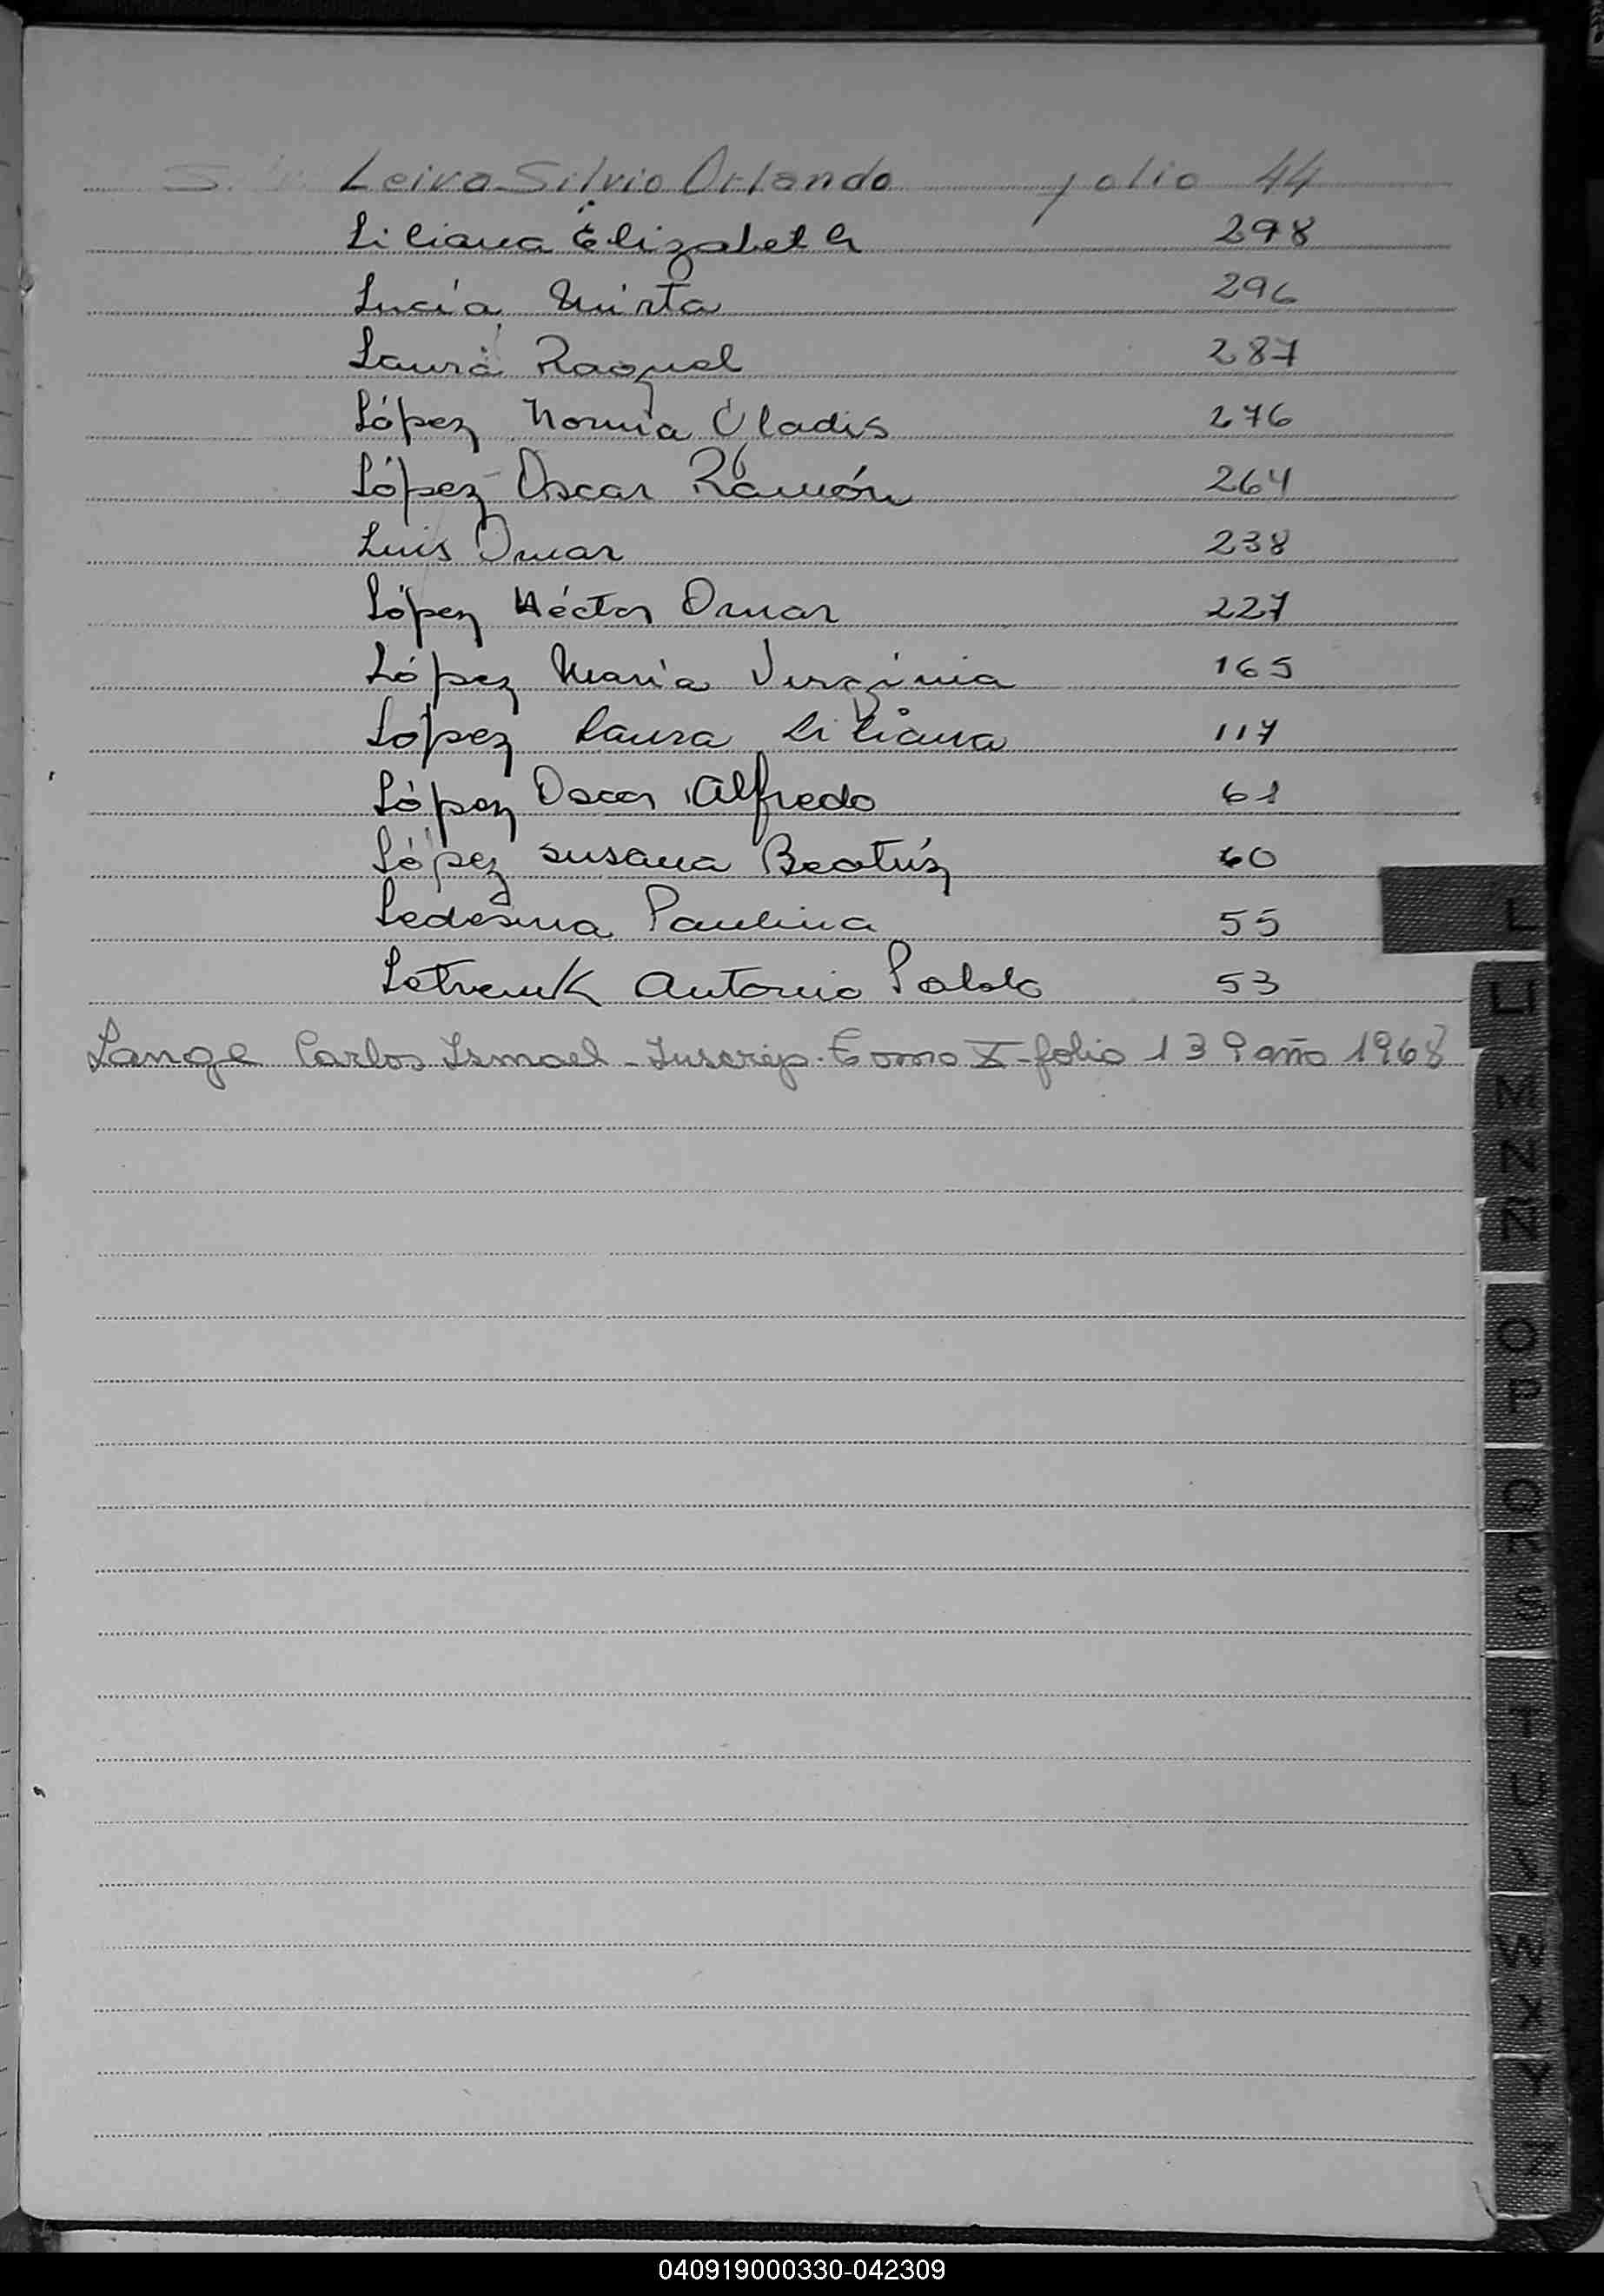 Leiva Silvio Orlando folio 44
Liliana Elizabeth 298
Lucía Mirta 296
Laura Raquel 287
López Norma Gladis 276
López Oscar Ramón 264
Luis Omar 238
López Héctor Omar 227
López María Virginia 165
López Laura Liliana 117
López Oscar Alfredo 61
López Susana Beatríz 60
Ledesma Paulina 55
Antonio Pablo 53
Lange Carlos Ismael - Inscrip. Tomo X - folio 139 año 1968
L
LL
M
N
Ñ
O
P
Q
R
S
T
U
V
W
X
Y
Z
040919000330-042309